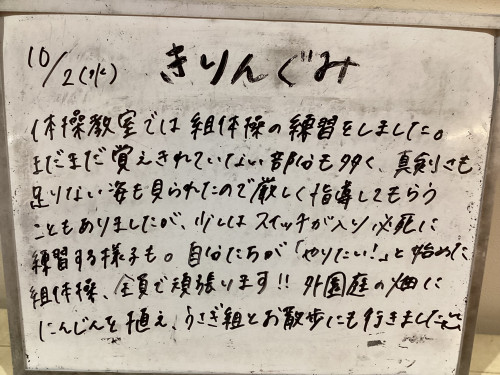 10/2(水) きりんぐみ
体操教室では組体操の練習をしました。
まだまだ覚えきれていない部分も多く、真剣さも
足りない姿も見られたので厳しく指導してもらう
こともありましたが、少しはスイッチが入り必死に
練習する様子も。自分たちが「やりたい!」と始めた
組体操、全員で頑張ります!! 外園庭の畑に
にんじんを植え、うさぎ組とお散歩にも行きました